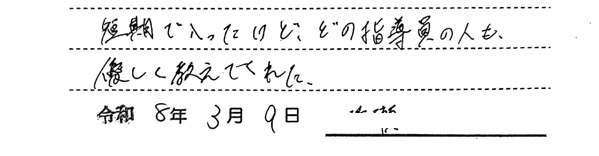 短期で入ったけど、どの指導員の人も、
優しく教えてくれた。
令和 8年 3月 9日